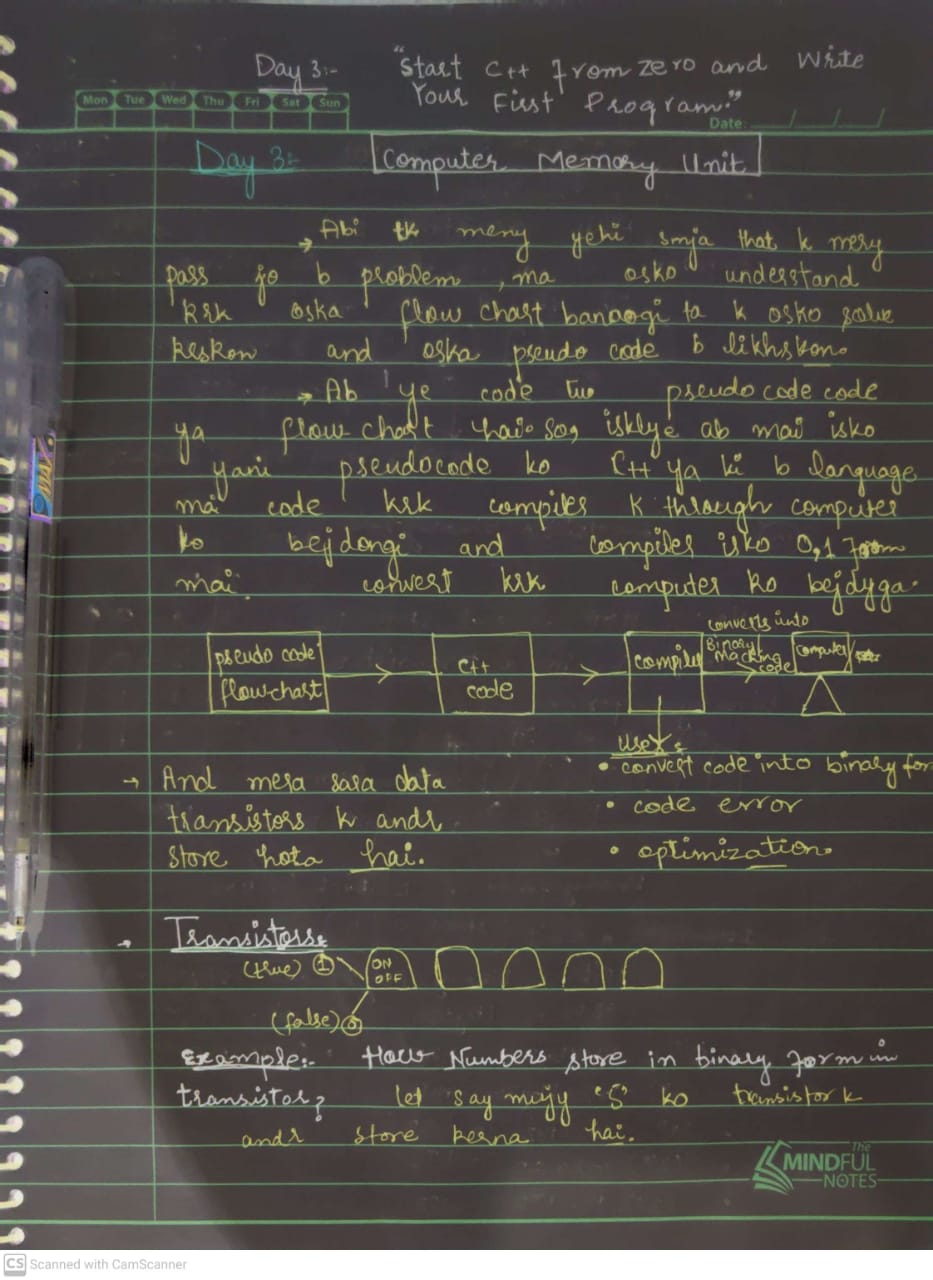 Day 3:- "Start C++ from zero and Write
Your First Program."
Mon Tue Wed Thu Fri Sat Sun
Date: / / /
Day 3:- Computer Memory Unit
→ Abi tk meny yehi smja that k mery
pass jo b problem, ma osko understand
krk oska flow chart banaogi ta k osko solve
kerskon and oska pseudo code b likhskon.
→ Ab ye code tu pseudo code code
ya flow chart hai. So, isklye ab mai isko
yani pseudocode ko C++ ya ki b language
mai code krk compiler k through computer
ko bejdongi and compiler isko 0,1 form
mai convert krk computer ko bejdyga.
pseudo code
flowchart
C++
code
compiler
converts into
Binary
macking
code
computer
Use:
• convert code into binary for
• code error
• optimization.
→ And mera sara data
transistors k andr
store hota hai.
→ Transistors:
(true) 1 ON
OFF
(false) 0
Example:- How Numbers store in binary form in
transistor? let say mujy '5' ko transistor k
andr store kerna hai.
The
MINDFUL
NOTES
CS Scanned with CamScanner